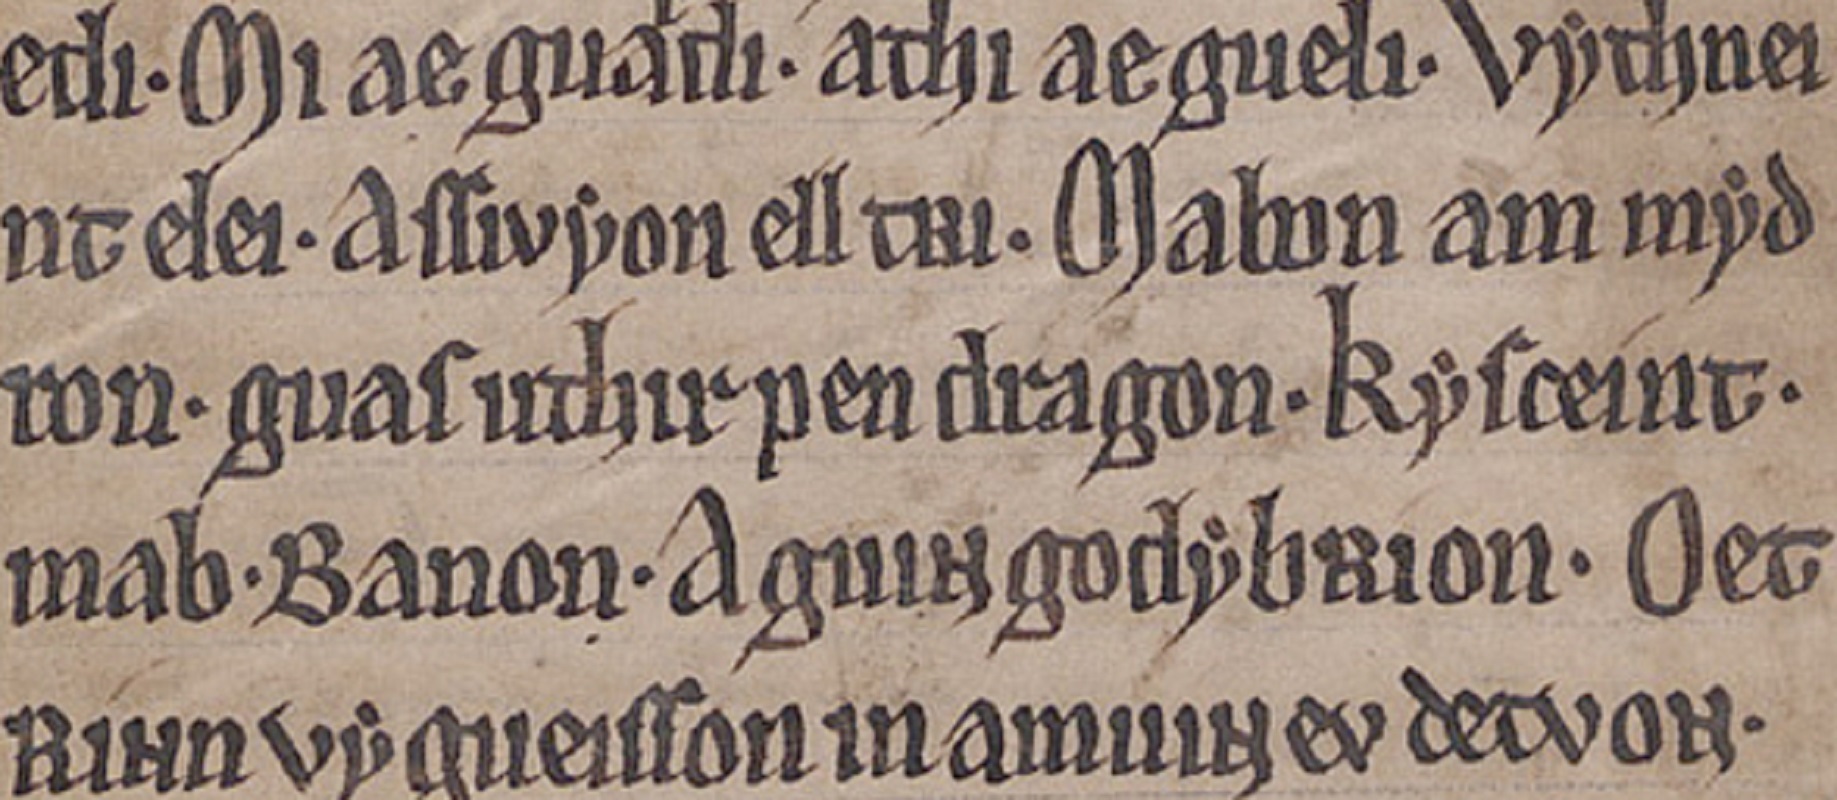 edi. Mi ae guardi. athi ae gueli. Vythnei
nt elei. Assivyon ell tri. Mabon am myd
ron. guas uthir pen dragon. kysceint.
mab. Banon. A guin godybrion. Oet
rinn vy gueisson in amuin ev detvon.